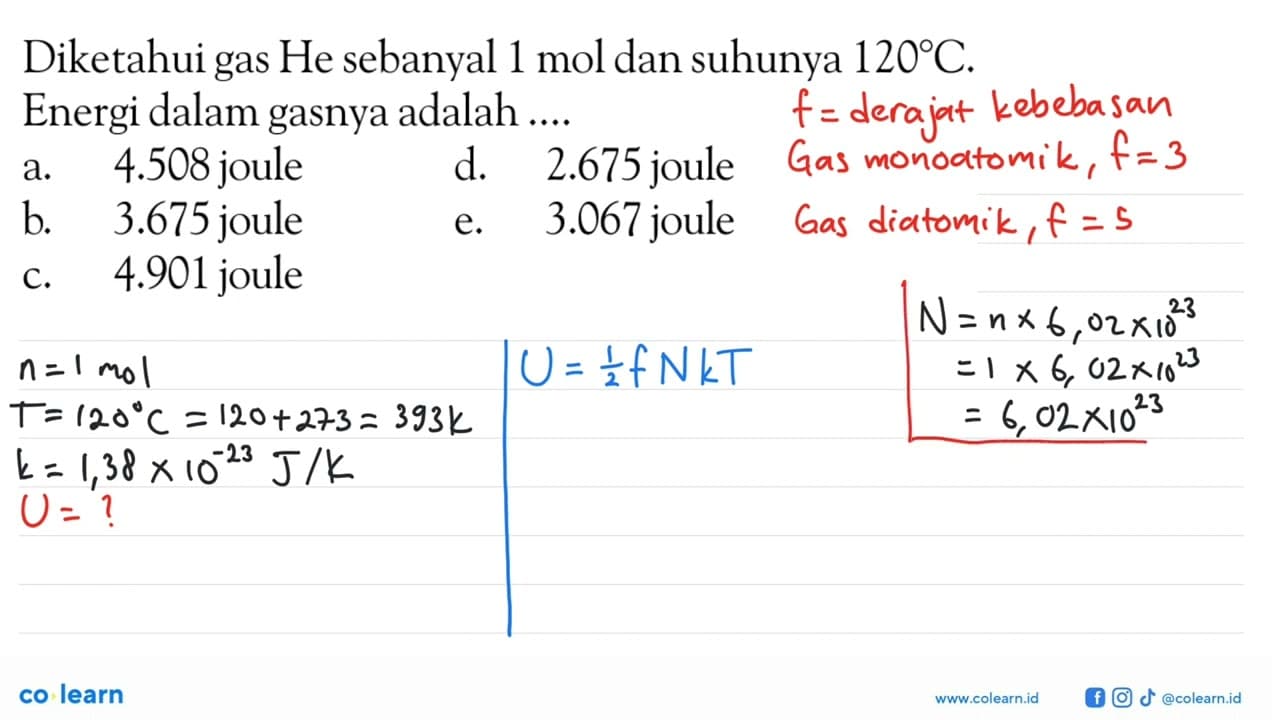 Diketahui gas He sebanyal 1 mol dan suhunya 120°C.
Energi dalam gasnya adalah ....
a. 4.508 joule d. 2.675 joule
b. 3.675 joule e. 3.067 joule
c. 4.901 joule
f = derajat kebebasan
Gas monoatomik, f = 3
Gas diatomik, f = 5
n = 1 mol
T = 120°C = 120 + 273 = 393K
k = 1,38 × 10⁻²³ J/K
U = ?
U = ½ f N k T
N = n × 6,02 × 10²³
= 1 × 6,02 × 10²³
= 6,02 × 10²³
co learn
www.colearn.id @colearn.id